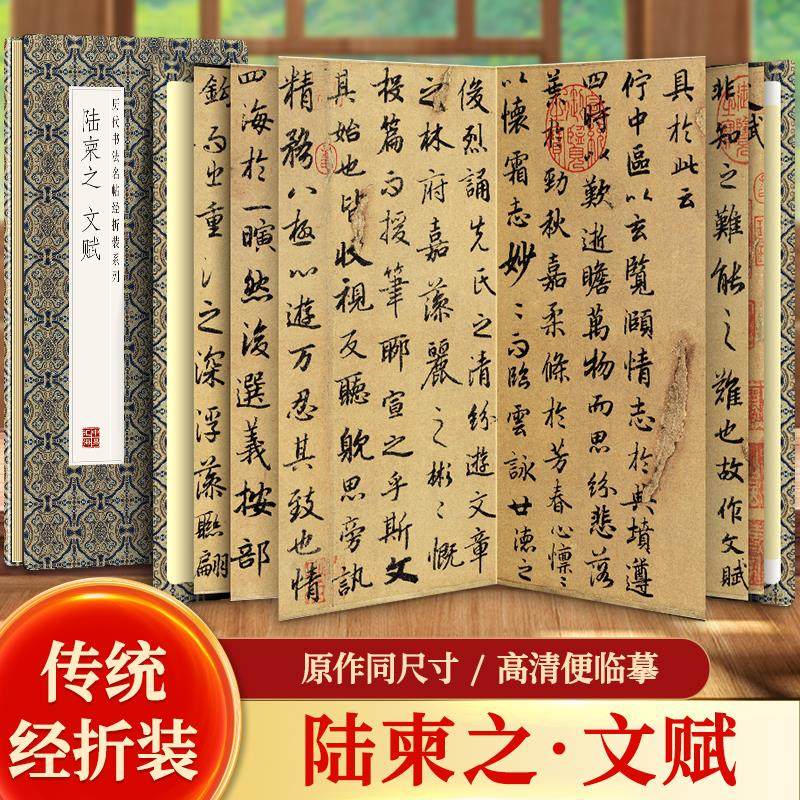 历代书法名帖经折装系列
陆柬之 文赋
賦
非知之難能之難也故作文賦
具於此云
佇中區以玄覽頤情志於典墳遵
四時以歎逝瞻萬物而思紛悲落
葉於勁秋嘉柔條於芳春心懍〻
以懷霜志妙〻而臨雲詠世德之
俊烈誦先民之清芬遊文章
之林府嘉藻麗之彬〻慨
投篇而援筆聊宣之乎斯文
其始也皆收視反聽躭思旁訊
精騖八極心遊万仞其致也情
四海於一瞬然後選義按部
鉤而出重之深浮藻聯翩
传统
经折装
原作同尺寸 / 高清便临摹
陆柬之·文赋